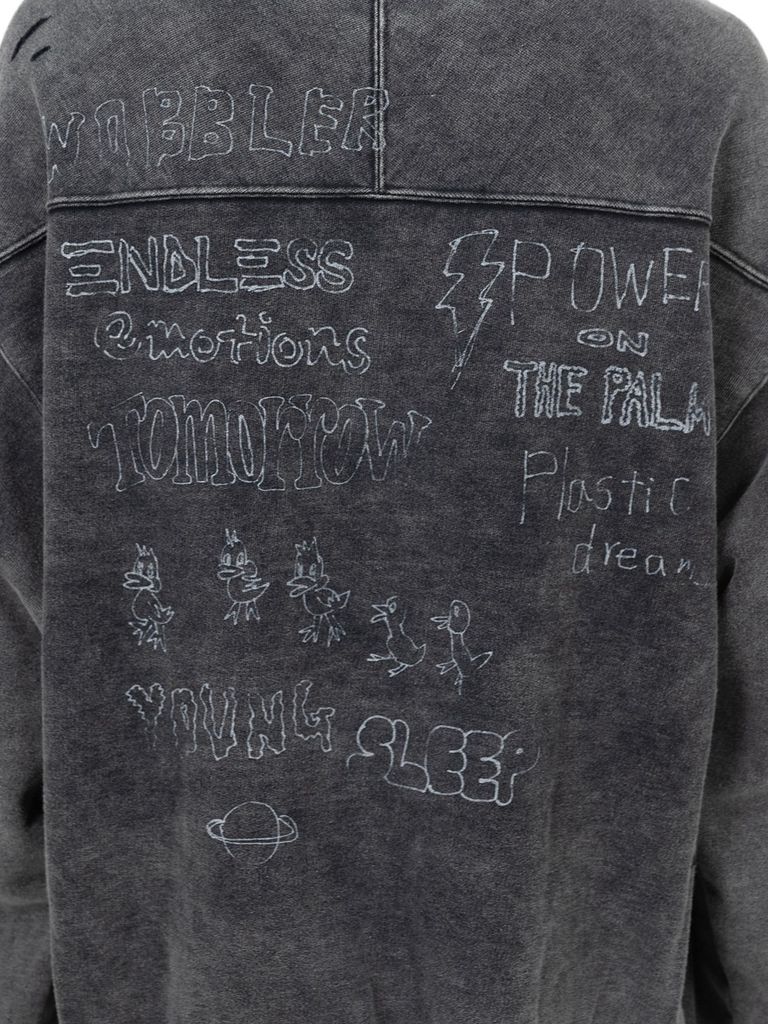 WOBBLER
ENDLESS
emotions
TOMORROW
POWER
ON
THE PALM
Plastic
dream
YOUNG
SLEEP